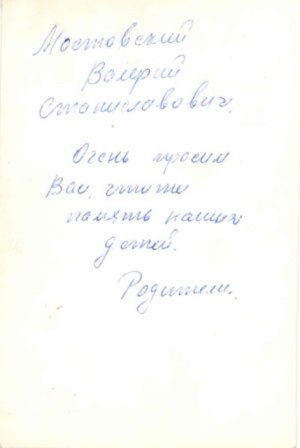 Мостовский
Валерий
Станиславович.
Очень просим
Вас, чтите
память наших
детей.
Родители.